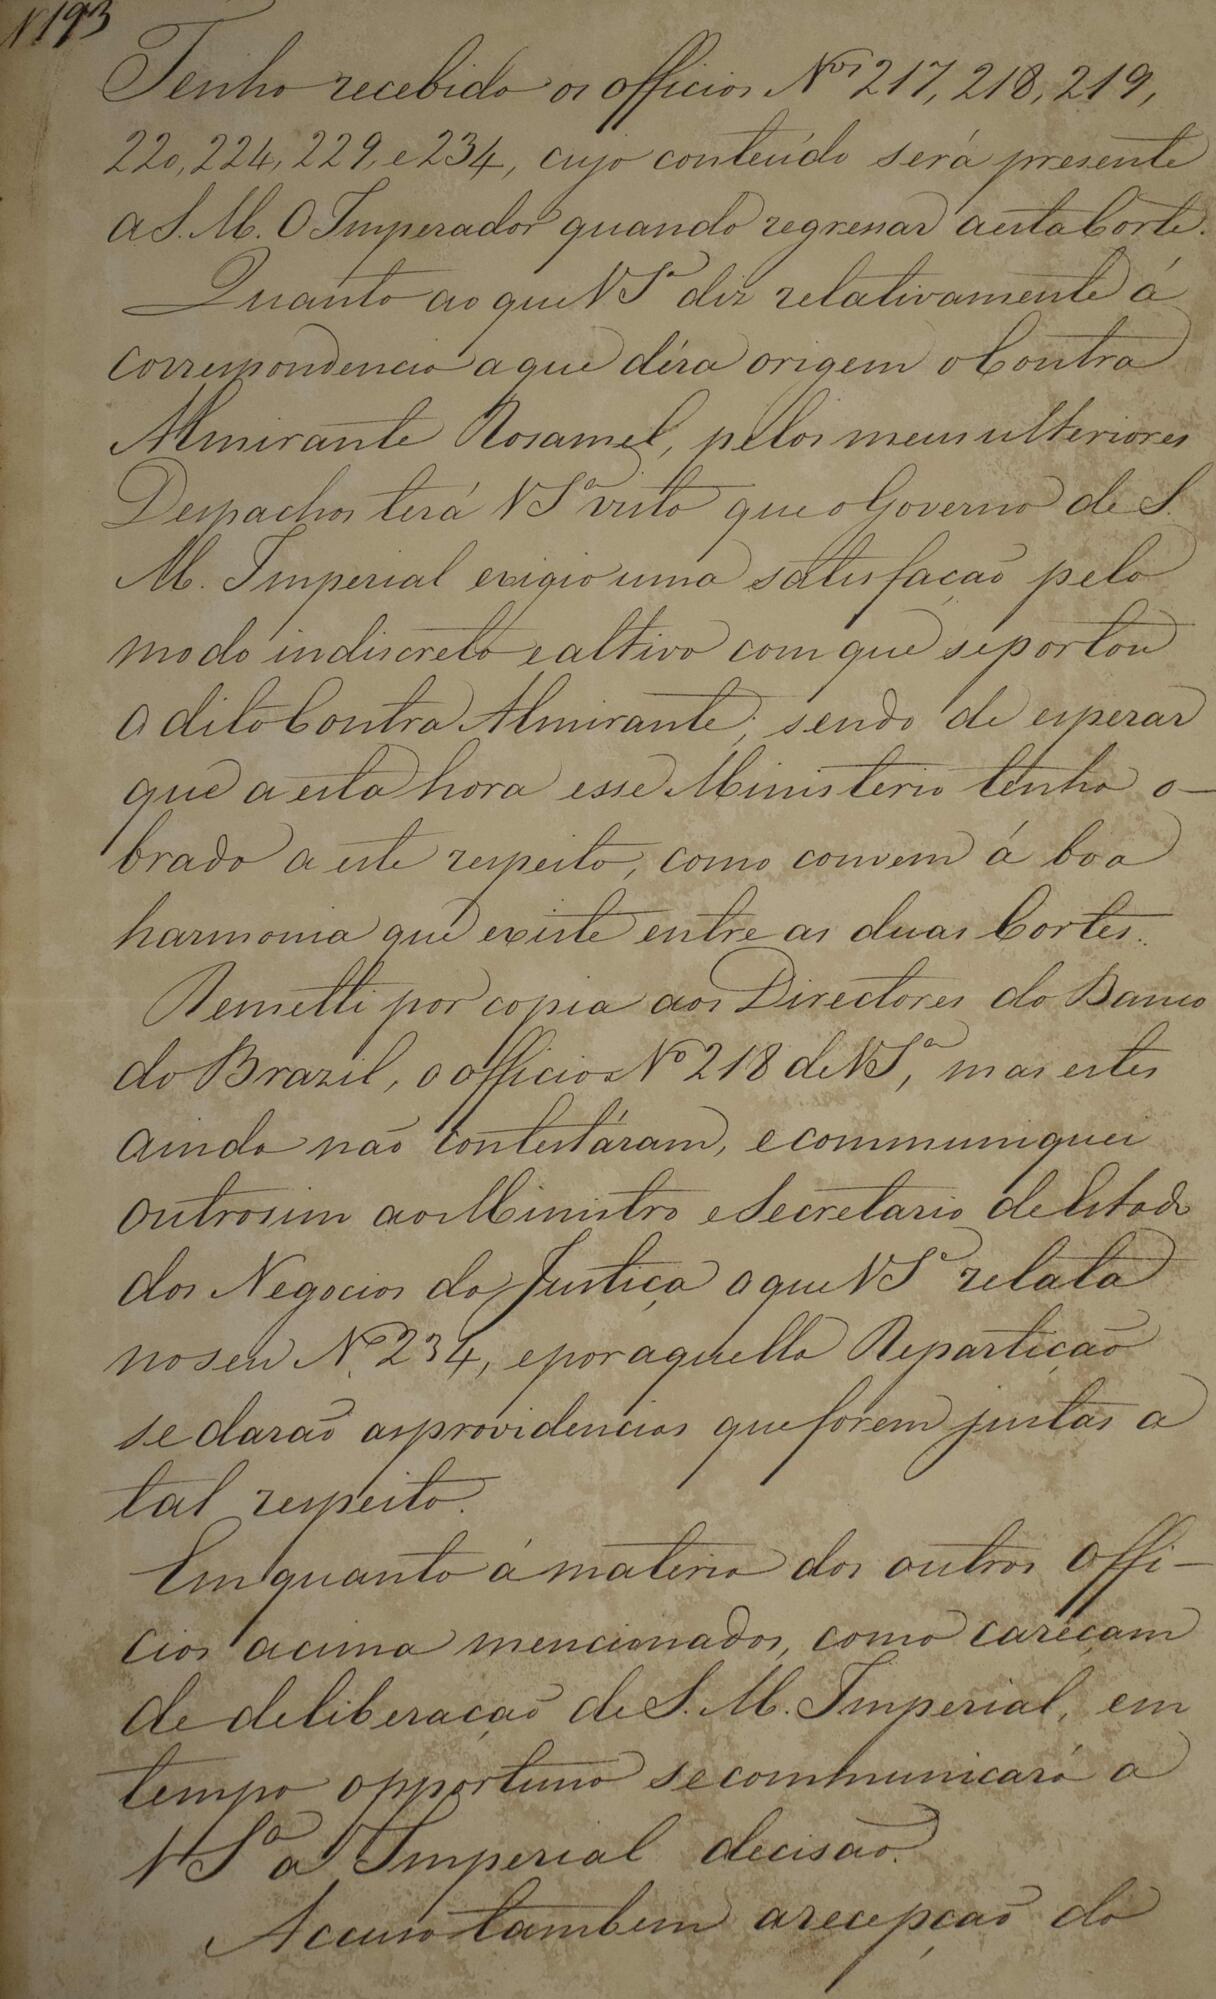 N 193
Tenho recebido os officios Nos 217, 218, 219,
220, 224, 229, e 234, cujo conteúdo será presente
a S. M. O Imperador quando regressar a esta Corte.
Quanto ao que VSa diz relativamente á
correspondencia a que déra origem o Contra
Almirante Rosamel, pelos meus ulteriores
Despachos terá VSa visto que o Governo de S.
M. Imperial exigio uma satisfação pelo
modo indiscreto e altivo com que se portou
o dito Contra Almirante; sendo de esperar
que a esta hora esse Ministerio tenha o-
brado a este respeito, como convem á boa
harmonia que existe entre as duas Cortes.
Remetti por copia aos Directores do Banco
do Brazil, o officio No 218 de VSa, mas estes
ainda não contestáram, e communiquei
outrosim ao Ministro e Secretario de Estado
dos Negocios da Justiça o que VSa relata
no seu No 234, e por aquella Repartição
se darão as providencias que forem justas a
tal respeito.
Em quanto á materia dos outros Offi-
cios acima mencionados, como careçam
de deliberação de S. M. Imperial, em
tempo opportuno se communicará a
VSa a Imperial decisão.
Accuso tambem a recepção do